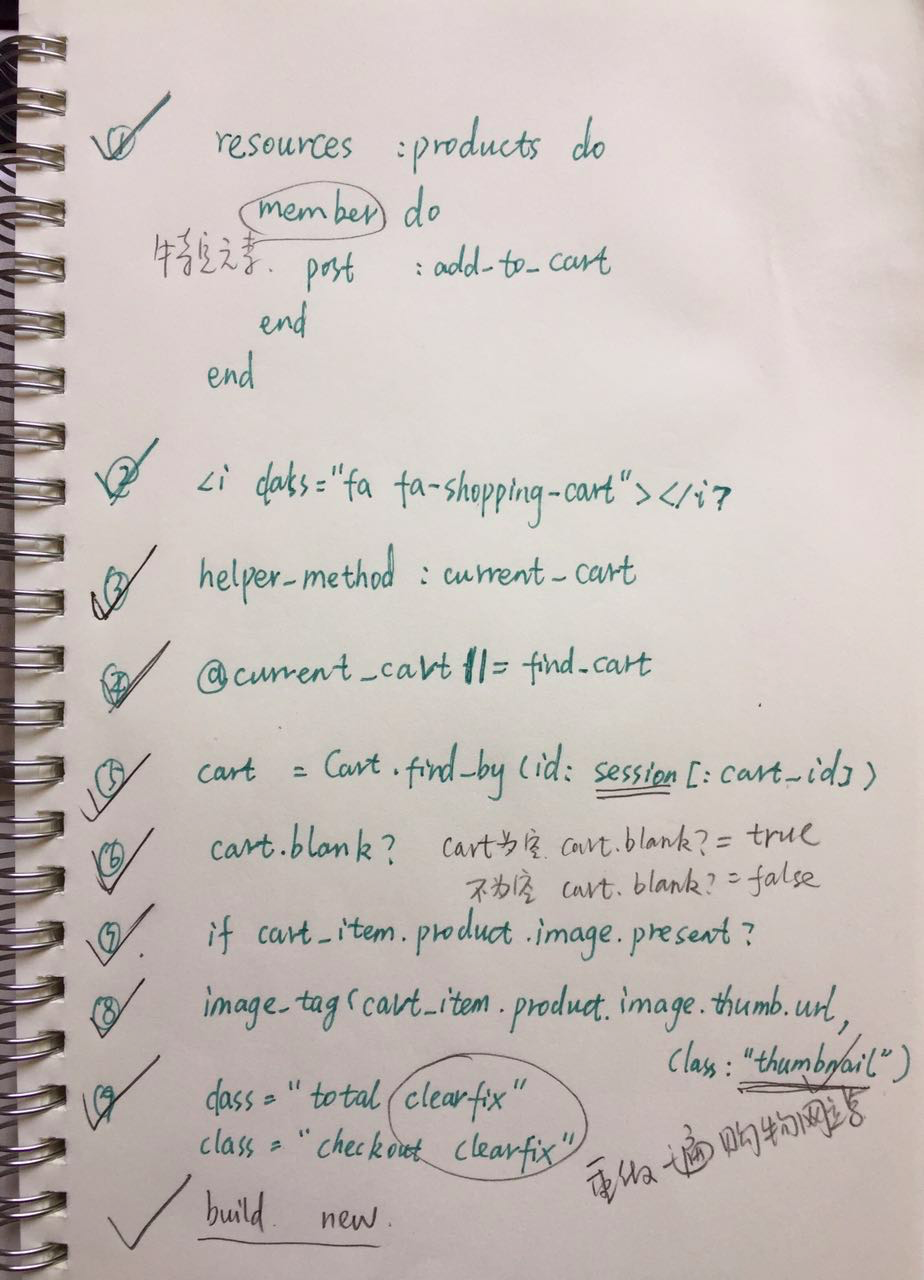 ① resources :products do
member do
特定元素. post :add_to_cart
end
end
② <i class="fa fa-shopping-cart"></i>
③ helper_method :current_cart
④ @current_cart ||= find_cart
⑤ cart = Cart.find_by(id: session[:cart_id])
⑥ cart.blank? cart为空 cart.blank? = true
不为空 cart.blank? = false
⑦ if cart_item.product.image.present?
⑧ image_tag(cart_item.product.image.thumb.url,
class: "thumbnail")
⑨ class = "total clearfix"
class = "checkout clearfix"
重做一遍购物网站
build new.